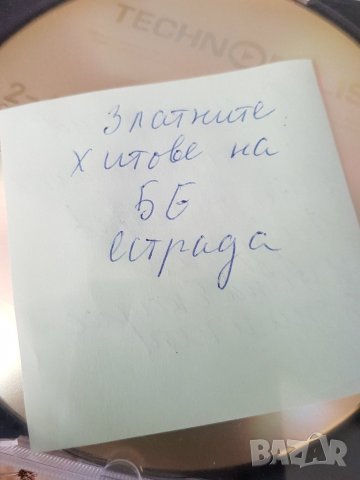 TECHNOPOLIS
2-
Златните
хитове на
БГ
естрада
BAZAR